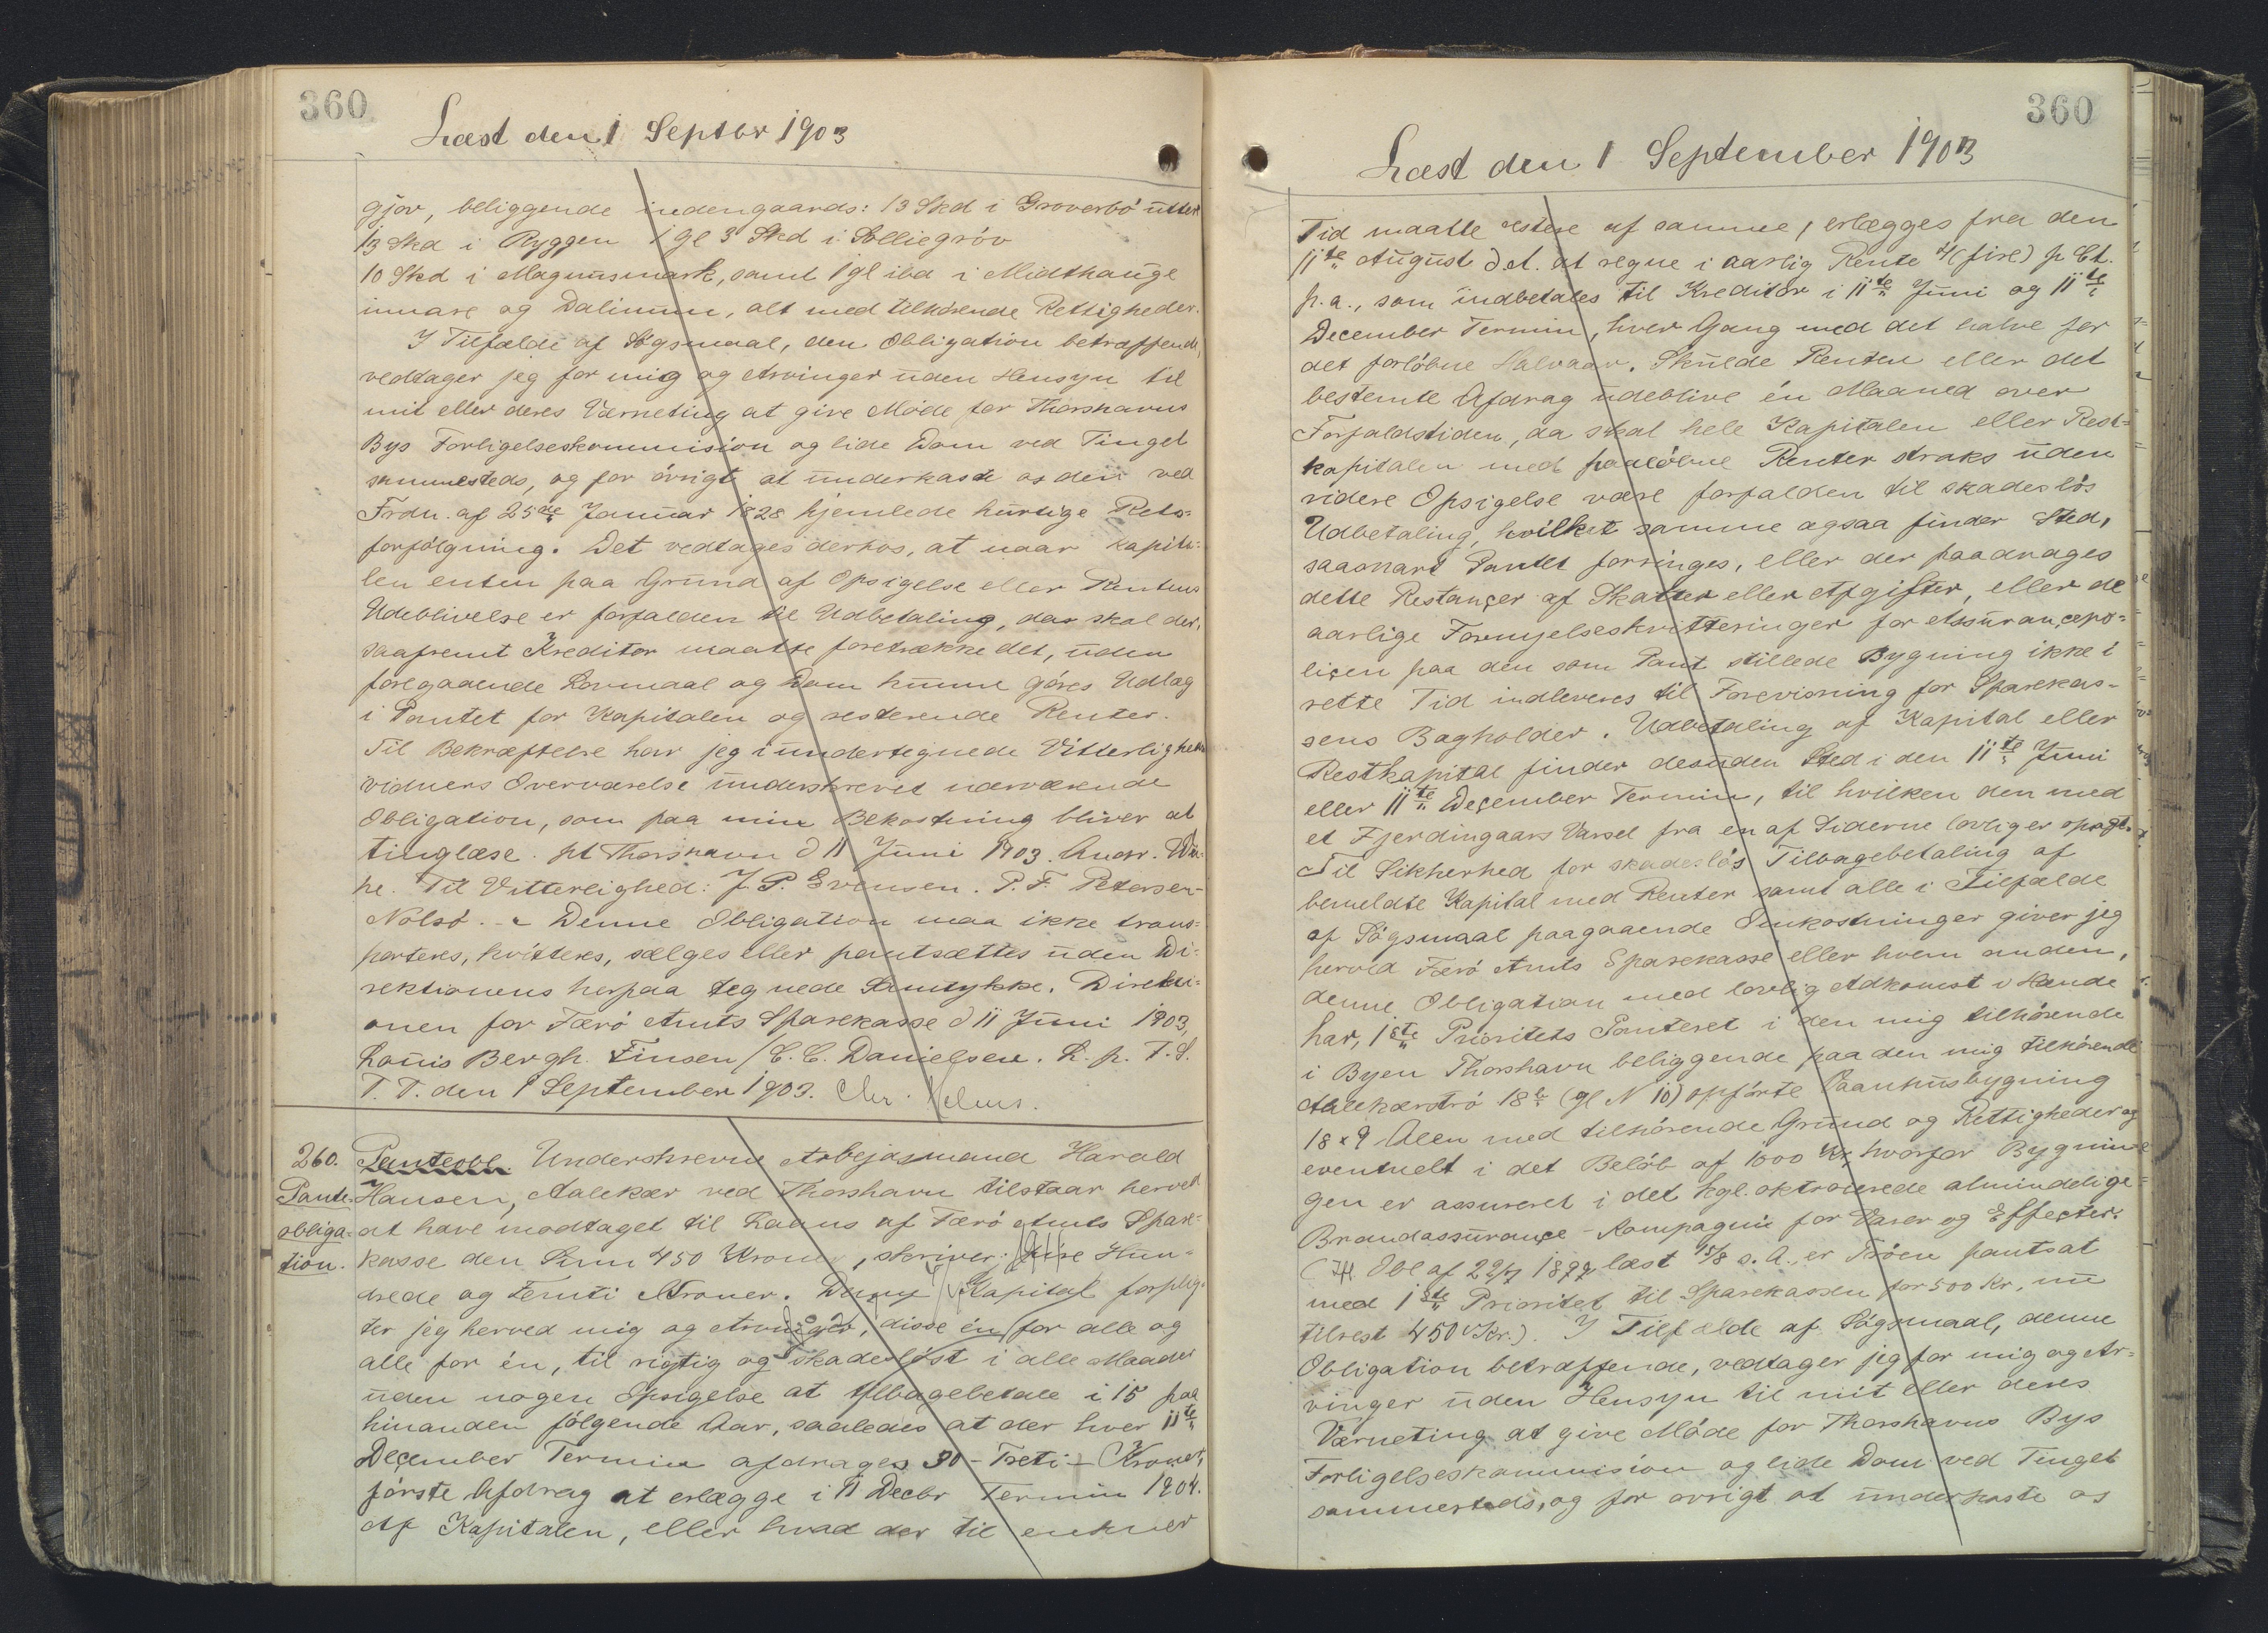 360
Læst den 1 Septbr 1903
gjov, beliggende indengaards: 13 Skd i Groverbö utter
13 Skd i Ryggen 1 gl 3 Skd i Solliegröv
10 Skd i Magnusmark, samt 1 gl ibd i Midthauge
innare og Dalinum, alt med tilhörende Rettigheder.
I Tilfælde af Sögsmaal, den Obligation betræffende,
vedtager jeg for mig og Arvinger uden Hensyn til
mit eller deres Værneting at give Möde for Thorshavns
Bys Forligelseskommission og lide Dom ved Tinget
sammesteds, og for övrigt at underkaste os den ved
Frdn. af 25de Januar 1828 hjemlede hurtige Rets=
forfölgning. Det vedtages derhos, at naar Kapita=
len enten paa Grund af Opsigelse eller Rentens
Udeblivelse er forfalden til Udbetaling, da skal der,
saafremt Kreditor maatte foretrække det, uden
foregaaende Lovmaal og Dom kunne göres Udlag
i Pantet for Kapitalen og resterende Renter.
Til Bekræftelse har jeg i undertegnede Vitterligheds
vidners Overværelse underskrevet nærværende
Obligation, som paa min Bekostning bliver at
tinglæse. pt Thorshavn d 11 Juni 1903. Andr. Wei=
he. Til Vitterlighed: J. P. Evensen. P. F. Petersen
Nolsö. - Denne Obligation maa ikke trans=
porteres, kvitteres, sælges eller pantsættes uden Di=
rektionens herpaa tegnede Samtykke. Direkti=
onen for Færö Amts Sparekasse d 11 Juni 1903,
Louis Bergh. Finsen / C. C. Danielsen. L. p. T. S.
T. T. den 1 September 1903. Chr. Helms.
260.
Pante-
obliga-
tion.
Panteobl. Underskrevne Arbejdsmand Harald
Hansen, Aalekær ved Thorshavn tilstaar herved
at have modtaget til Laans af Færö Amts Spare=
kasse den Sum 450 Kroner, skriver: fire Hun=
drede og Femti Kroner. Denne Kapital forplig=
ter jeg herved mig og Arvinger, disse én for alle og
alle for én, til rigtig og skadeslöst i alle Maader
uden nogen Opsigelse at tilbagebetale i 15 paa
hinanden fölgende Aar, saaledes at der hver 11te
December Termin afdrages 30 - Treti - Kroner,
förste Afdrag at erlægge i 11 Decbr Termin 1904.
Af Kapitalen, eller hvad der til enhver
360
Læst den 1 September 1903
Tid maatte restere af samme, erlægges fra den
11te August d. A. at regne i aarlig Rente 4 (fire) p Ct.
p. a., som indbetales til Kreditor i 11te Juni og 11te
December Termin, hver Gang med det halve for
det forlöbne Halvaar. Skulde Renten eller det
bestemte Afdrag udeblive én Maaned over
Forfaldstiden, da skal hele Kapitalen eller Rest=
kapitalen med paalöbne Renter straks uden
videre Opsigelse være forfalden til skadeslös
Udbetaling, hvilket samme ogsaa finder Sted,
saasnart Pantet forringes, eller der paadrages
dette Restançer af Skatter eller Afgifter, eller de
aarlige Fornyelseskvitteringer for Assurançepo=
liçen paa den som Pant stillede Bygning ikke i
rette Tid indleveres til Forevisning for Sparekas=
sens Bogholder. Udbetaling af Kapital eller
Restkapital finder desuden Sted i den 11te Juni
eller 11te Deçember Termin, til hvilken den med
et Fjerdingaars Varsel fra en af Siderne lovlig er opsagt.
Til Sikkerhed for skadeslös Tilbagebetaling af
bemeldte Kapital med Renter samt alle i Tilfælde
af Sögsmaal paagaaende Omkostninger giver jeg
herved Færö Amts Sparekasse eller hvem anden,
denne Obligation med lovlig Adkomst i Hænde
har, 1ste Prioritets Panteret i den mig tilhörende
i Byen Thorshavn beliggende paa den mig tilhörende
Aalekærströ 18b (gl N 10) opförte Vaanhusbygning
18 x 9 Alen med tilhörende Grund og Rettigheder og
eventuelt i det Belöb af 1000 Kr, hvorfor Bygnin=
gen er assureret i det kgl. oktroierede almindelige
Brandassurançe-Kompagni for Varer og Effecter.
(Ifl. Obl af 22/7 1899 læst 15/8 s. A., er Tröen pantsat
med 1ste Prioritet til Sparekassen for 500 Kr, nu
tilrest 450 Kr.). I Tilfælde af Sögsmaal, denne
Obligation betræffende, vedtager jeg for mig og Ar=
vinger uden Hensyn til mit eller deres
Værneting at give Möde for Thorshavns Bys
Forligelseskommission og lide Dom ved Tinget
sammesteds, og for övrigt at underkaste os